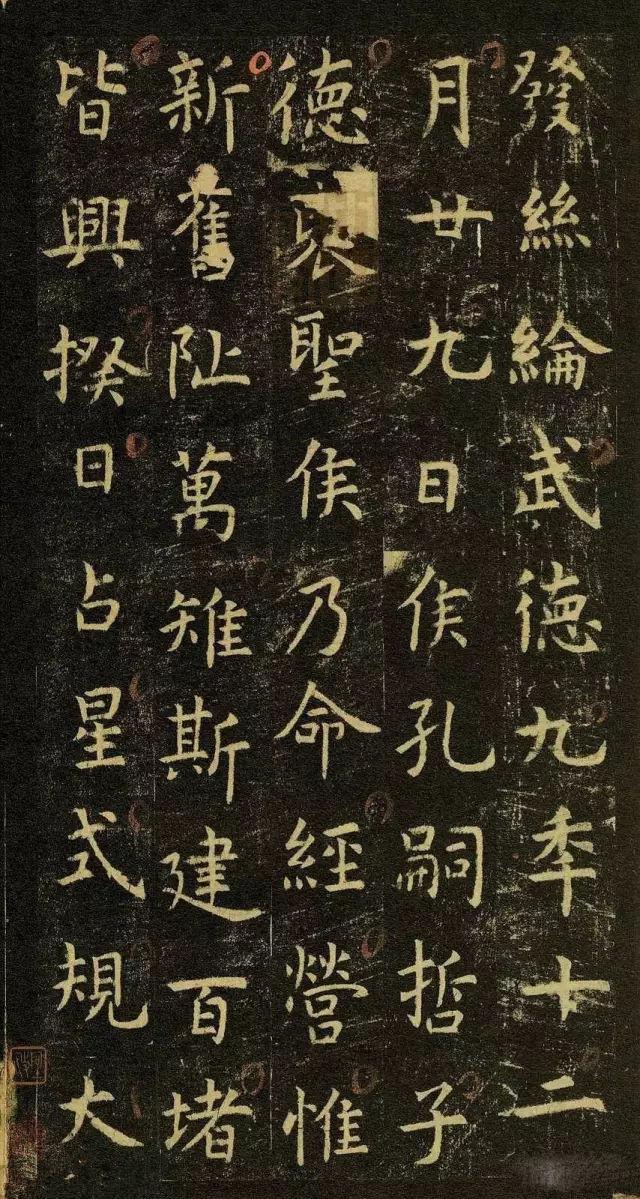 發絲綸武德九年十二
月廿九日侯孔嗣哲子
德褒聖侯乃命經營惟
新舊阯萬雉斯建百堵
皆興揆日占星式規大